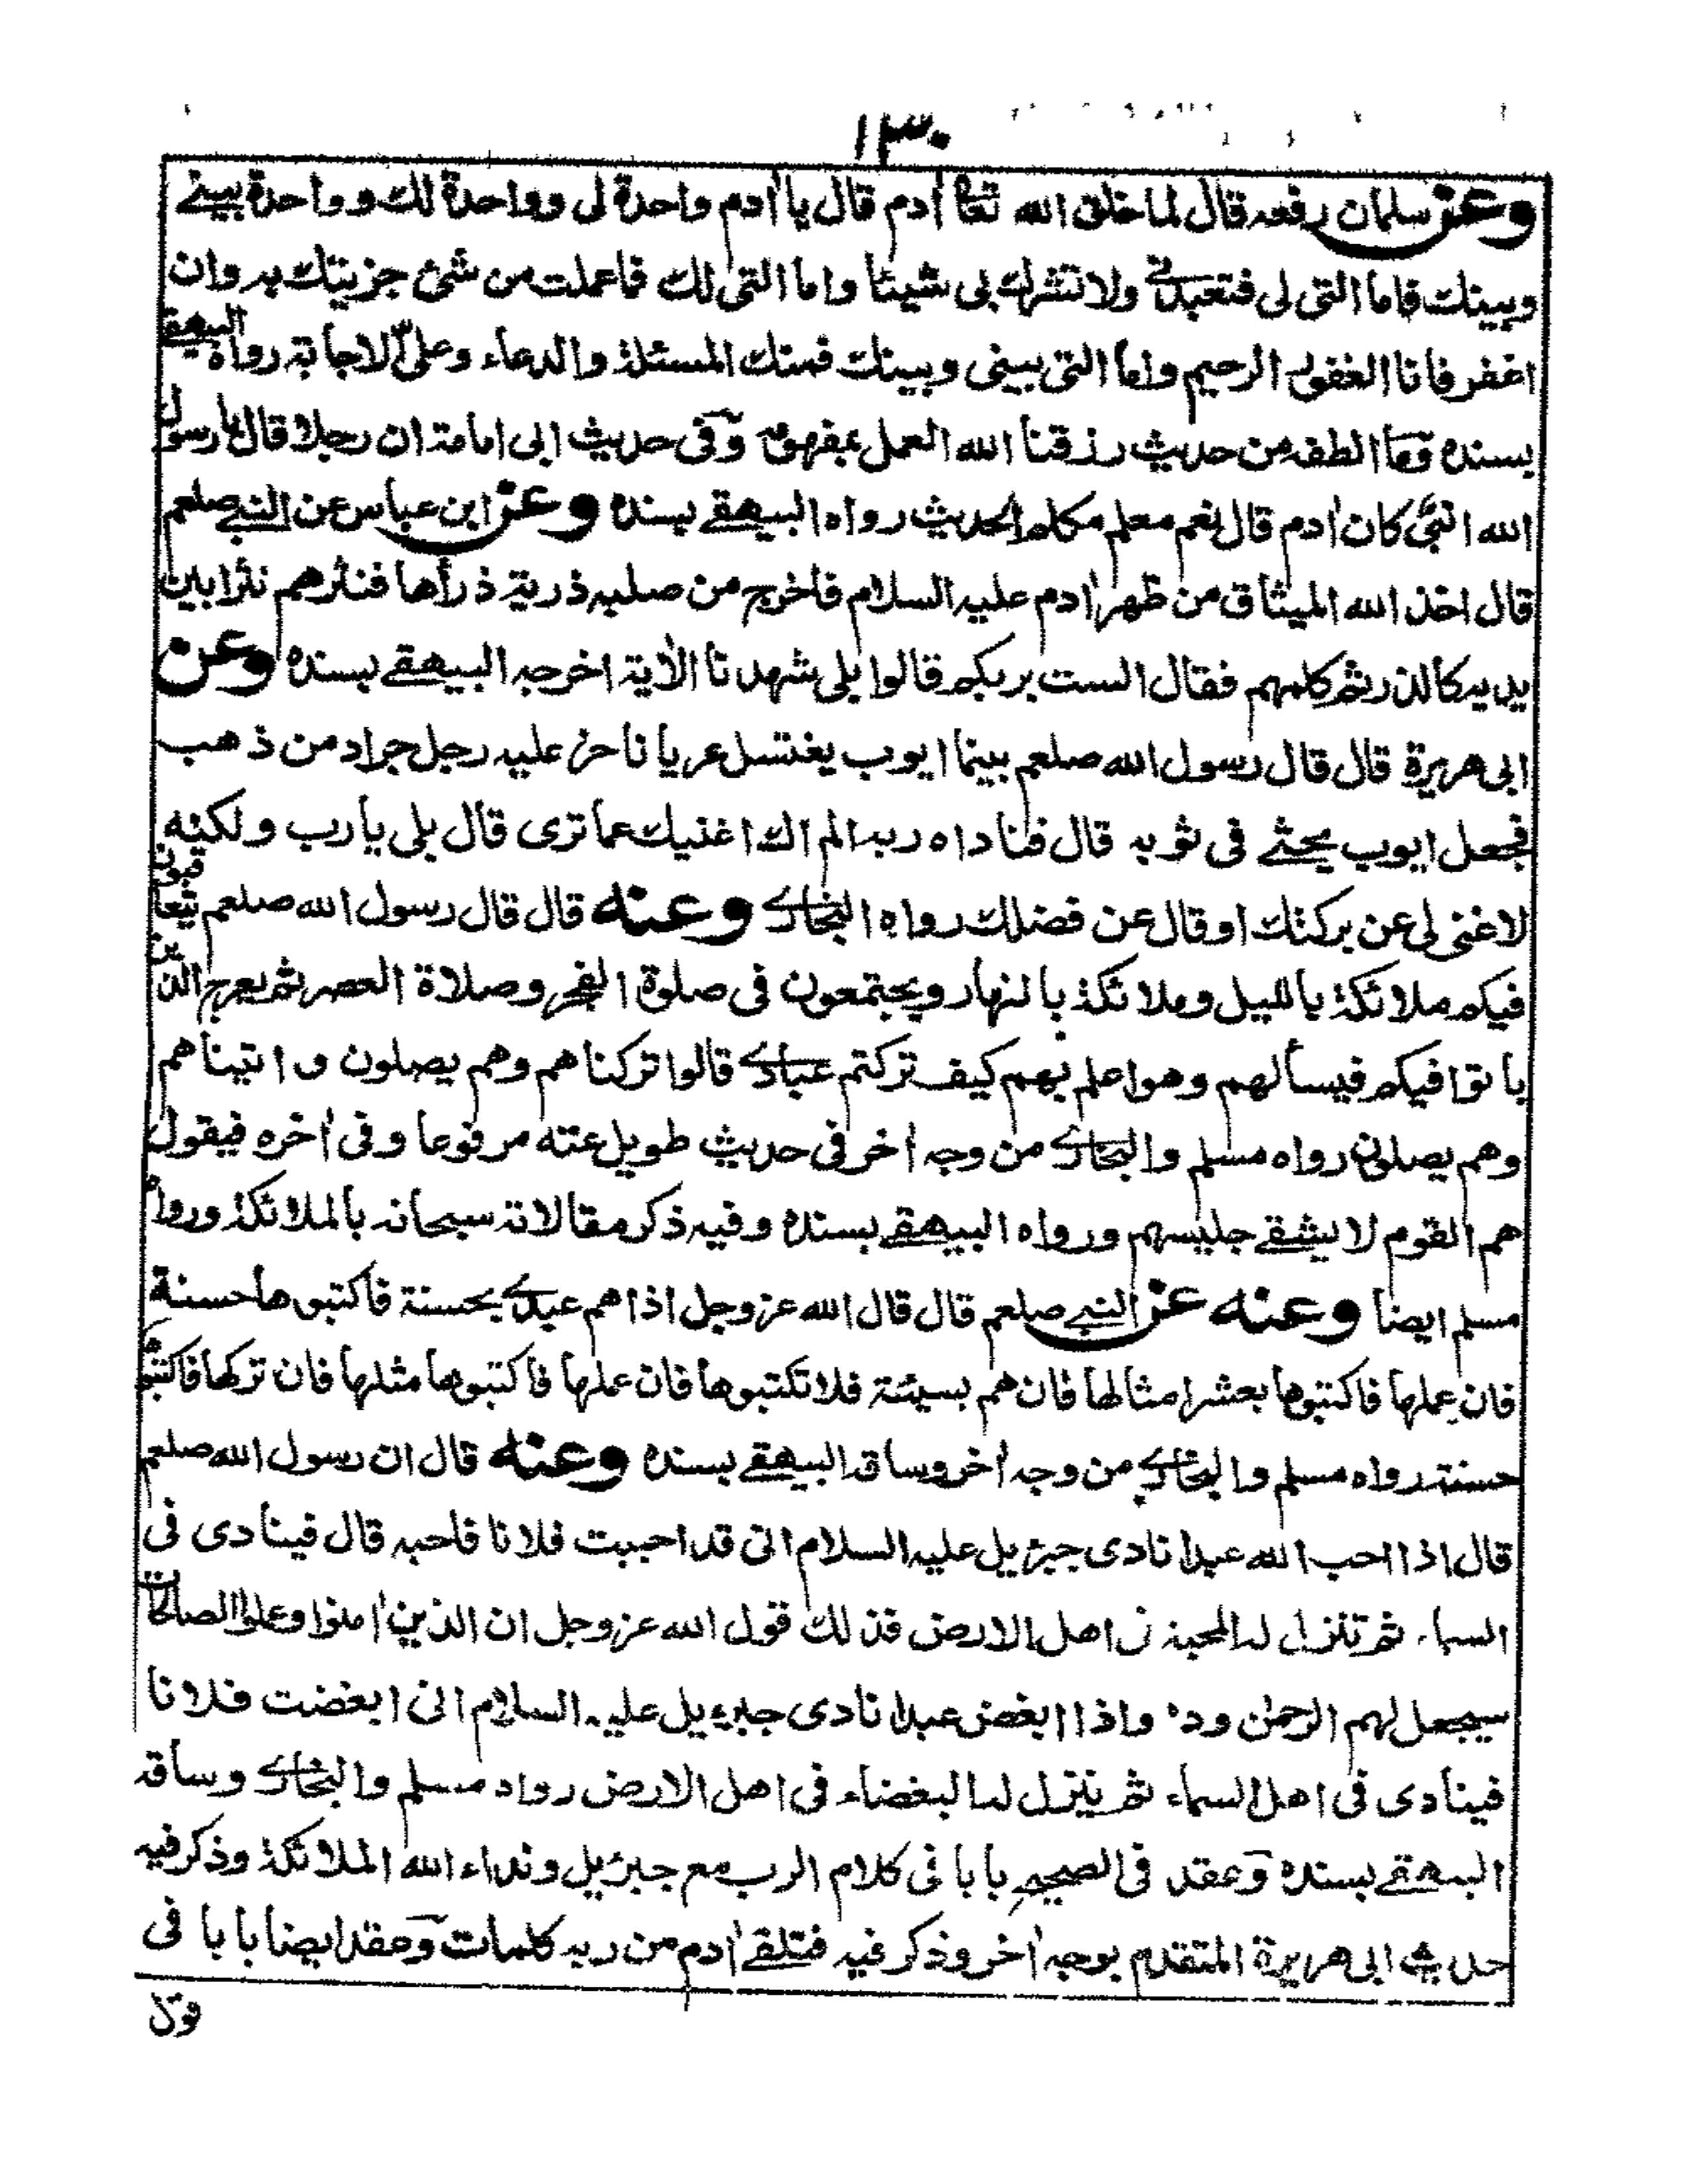 ١٣٠
وعن سلمان رفعه قال لما خلق الله تعا أدم قال يا أدم واحدة لى وواحدة لك وواحدة بينے
وبينك فاما التى لى فتعبدنى ولا تشرك بى شيئا واما التى لك فما عملت من شئ جزيتك به وان
اغفر فانا الغفور الرحيم واما التى بينى وبينك فمنك المسئلة والدعاء وعلىّ الاجابة رواه البيهقے
بسنده وما الطفه من حديث رزقنا الله العمل بمفهومه وفى حديث ابى امامة ان رجلا قال يا رسول
الله انبىّ كان أدم قال نعم معلم مكلم الحديث رواه البيهقے بسنده وعن ابن عباس عن النبے صلعم
قال اخذ الله الميثاق من ظهر أدم عليه السلام فاخرج من صلبه ذرية ذرأها فنثرهم نثرا بين
يديه كالذر ثم كلمهم فقال الست بربكم قالوا بلى شهدنا الأية اخرجه البيهقے بسنده وعن
ابى هريرة قال قال رسول الله صلعم بينما ايوب يغتسل عريانا خر عليه رجل جراد من ذهب
فجعل ايوب يحثے فى ثوبه قال فناداه ربه الم اك اغنيك عما ترى قال بلى يا رب ولكنه
لا غنى لى عن بركتك او قال عن فضلك رواه البخارے وعنه قال قال رسول الله صلعم يتعاقبون
فيكم ملائكة بالليل وملائكة بالنهار ويجتمعون فى صلوة الفجر وصلاة العصر ثم يعرج الذين
باتوا فيكم فيسألهم وهو اعلم بهم كيف تركتم عبادے قالوا تركناهم وهم يصلون واتيناهم
وهم يصلون رواه مسلم والبخارے من وجه أخر فى حديث طويل عنه مرفوعا وفى أخره فيقول
هم القوم لا يشقے جليسهم ورواه البيهقے بسنده وفيه ذكر مقالاته سبحانه بالملائكة ورواه
مسلم ايضا وعنه عن النبے صلعم قال قال الله عز وجل اذا هم عبدے بحسنة فاكتبوها حسنة
فان عملها فاكتبوها بعشر امثالها فان هم بسيئة فلا تكتبوها فان عملها فاكتبوها مثلها فان تركها فاكتبوها
حسنة رواه مسلم والبخارے من وجه أخر وساقه البيهقے بسنده وعنه قال ان رسول الله صلعم
قال اذا احب الله عبدا نادى جبرئيل عليه السلام انى قد احببت فلانا فاحبه قال فينادى فى
السماء ثم تنزل له المحبة فى اهل الارض فذلك قول الله عز وجل ان الذين أمنوا وعملوا الصالحات
سيجعل لهم الرحمٰن ودا واذا ابغض عبدا نادى جبرءيل عليه السلام انى ابغضت فلانا
فينادى فى اهل السماء ثم ينزل له البغضاء فى اهل الارض رواه مسلم والبخارے وساقه
البيهقے بسنده وعقد فى الصحيح بابا فى كلام الرب مع جبرئيل ونداء الله الملائكة وذكر فيه
حديث ابى هريرة المتقدم بوجه أخر وذكر فيه فتلقے أدم من ربه كلمات وعقد ايضا بابا فى